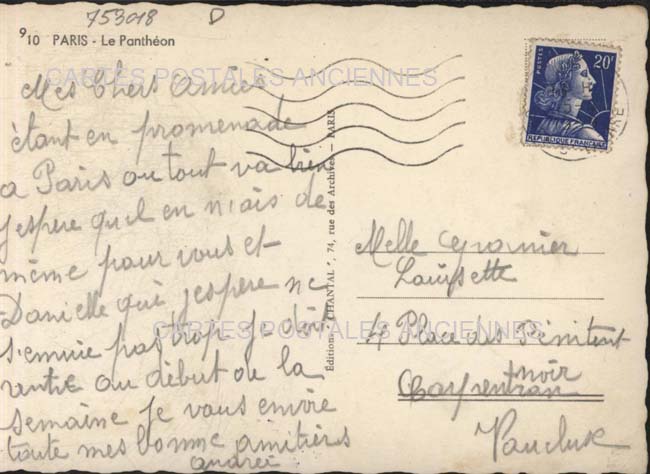 753018 D
910 PARIS - Le Panthéon
CARTES POSTALES ANCIENNES
POSTES 20F
REPUBLIQUE FRANÇAISE
Mes Chers Amies
étant en promenade
a Paris ou tout va bien
j'espère quil en n'ais de
même pour vous et
Danielle que j'espère ne
s'ennuie pas trop j- dois
rentre au début de la
semaine je vous envoie
toute mes bonne amitiérs
andrée
Éditions "CHANTAL", 74, rue des Archives - PARIS
Melle Granier
Louisette
4 Place des Pénitent
noir
Carpentran
Vaucluse
CARTES POSTALES ANCIENNES